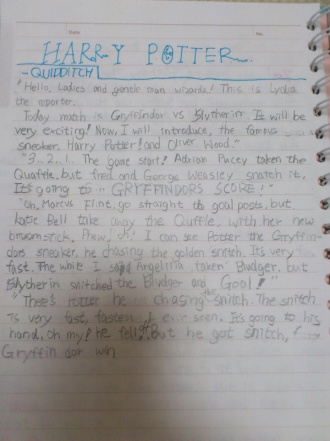 Date
No.
HARRY POTTER
-QUIDDITCH
"Hello, Ladies and gentle man wizards! This is Lydia
the reporter...
Today match is Gryffindor vs Slytherin. It will be
very exciting! Now, I will introduce, the famous
sneaker, Harry Potter! and Oliver Wood."
"3...2...1... The game start! Adrian Pucey taken the
Quaffle, but fred and George Weasley snatch it,
It's going to... GRYFFINDORS SCORE!"
"Oh, Marcus Flint, go straight to goal posts, but
Katie Bell take away the Quffle, with her new
broomstick. Phew, I can see Potter the Gryffin-
dors sneaker, he chasing the golden snitch. It's very
fast. The while I said Angelina taken Bludger, but
Slytherin snitched the Bludger and Goal!"
"There's Potter he chasing snitch. The snitch
is very fast, I ever seen. It's going to his
hand. Oh my! he fell! But he got snitch,!
Gryffin dor win